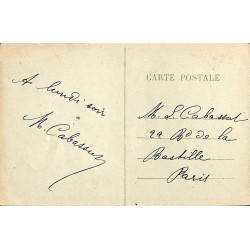 A lundi soir
M. Cabassut
CARTE POSTALE
M. L. Cabassut
29 Bd de la
Bastille
Paris